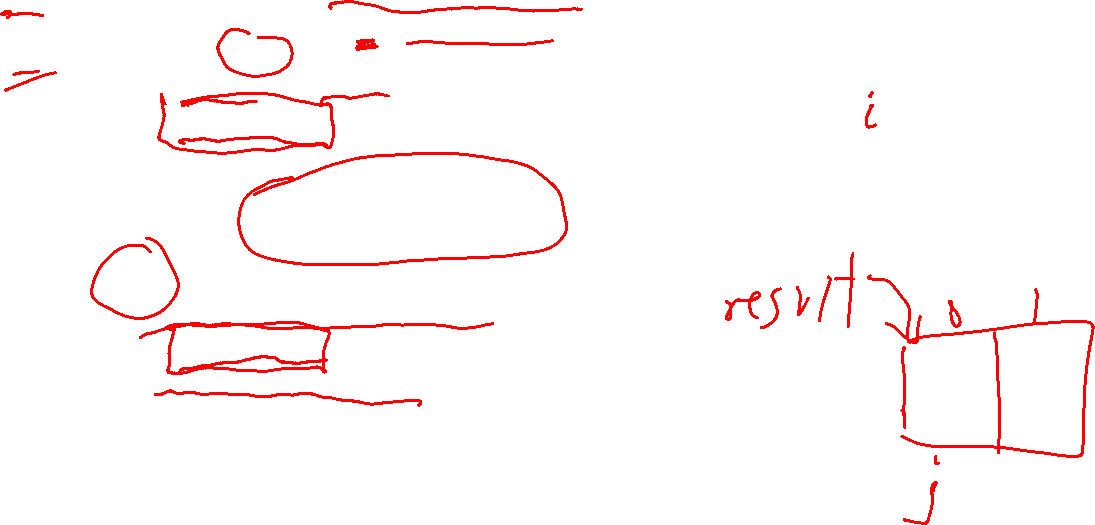 i
result
0 1
j